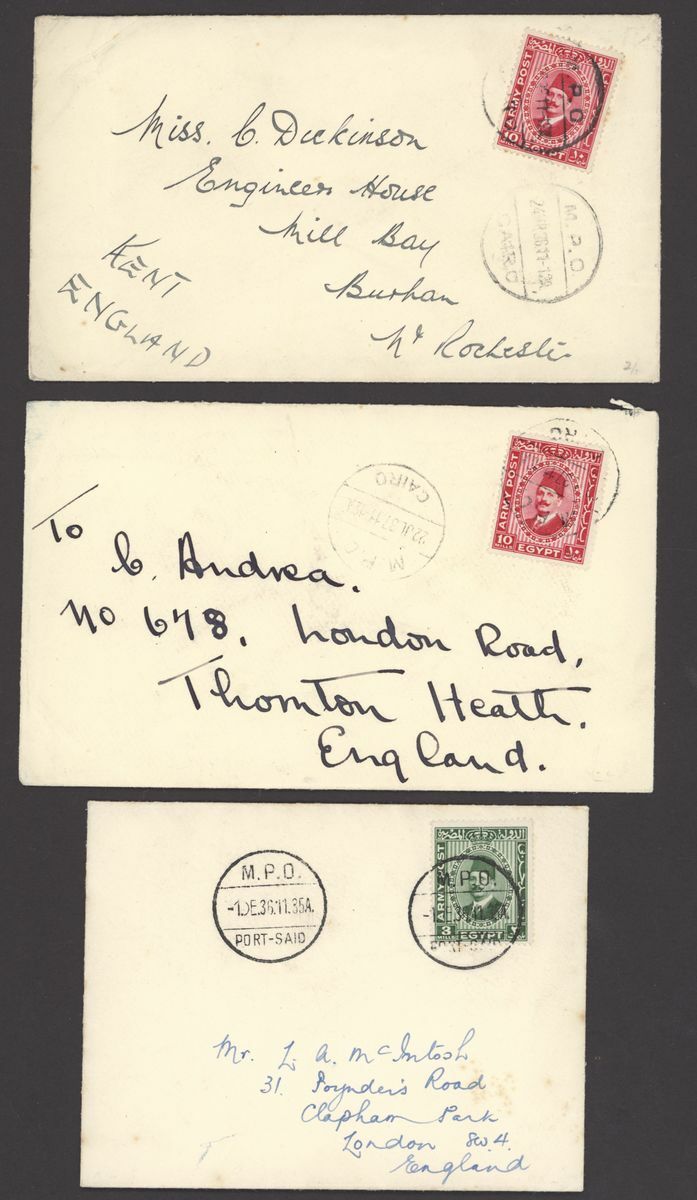 ARMY POST
10
MILLS
EGYPT
الدولة المصرية
P.O
Miss. C. Dickinson
Engineers House
Mill Bay
Burham
Nr Rochester
KENT
ENGLAND
M.P.O
CAIRO
2/-
ARMY POST
10
MILLS
EGYPT
الدولة المصرية
CAIRO
22 JL.37.11
M P
To
C. Andrea.
No 678, London Road,
Thornton Heath.
England.
ARMY POST
3
MILLS
EGYPT
الدولة المصرية
M.P.O.
-1.DE.36.11.35A.
PORT-SAID
M.P.O.
PORT-SAID
Mr. L. A. McIntosh
31. Poynder's Road
Clapham Park
London SW.4.
England